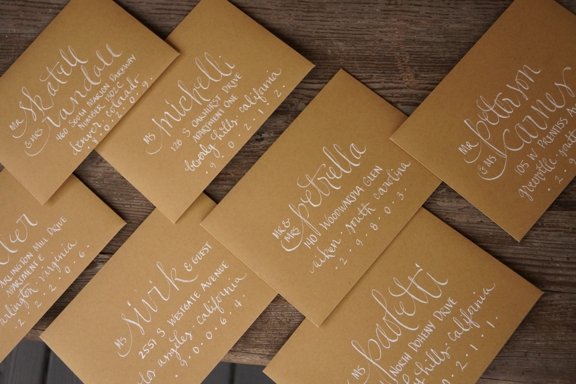 MR. skatell
& MRS randall
460 SOUTH MARION PARKWAY
NUMBER 1302C
denver, colorado
8.0.2.0.9.
MS michelli
S OAKHURST DRIVE
APARTMENT ONE
beverly hills, california
.9.0.2.1.2.
MR. &
MRS petrella
WOODWARDIA GLEN
aiken, south carolina
.2.9.8.0.3.
MR peterson
& MS carnes
105 W. PRENTISS
greenville, south
ARLINGTON MILL DRIVE
APARTMENT E
arlington, virginia
2.2.2.0.6.
MS sivik & GUEST
2551 S WESTGATE AVENUE
los angeles, california
.9.0.0.6.4.
MS paoletti
NORTH DOHENY DRIVE
hills, california
.2.1.1.